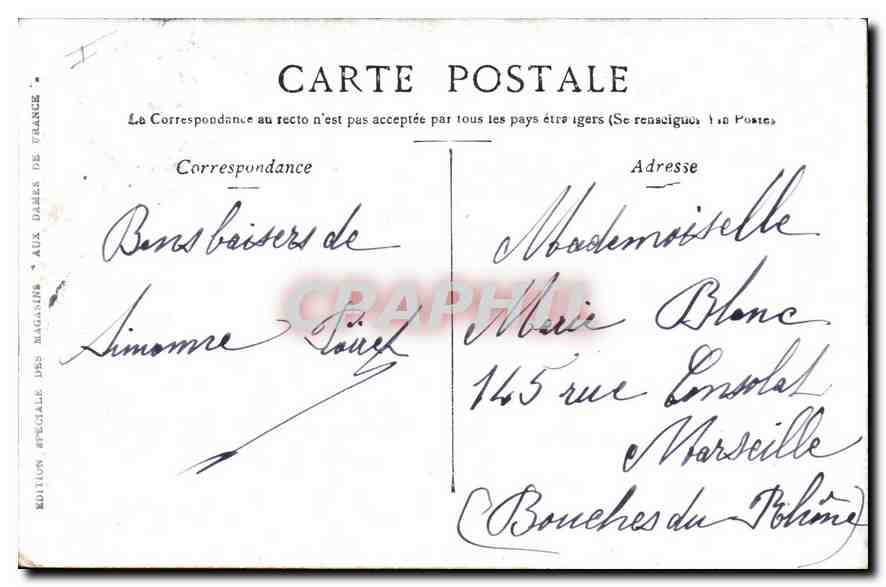 CARTE POSTALE
La Correspondance au recto n'est pas acceptée par tous les pays étrangers (Se renseigner à la Poste)
Correspondance
Bons baisers de
Simonne
Adresse
Mademoiselle
Marie Blanc
145 rue Consolat
Marseille
(Bouches du Rhône)
EDITION SPECIALE DES MAGASINS "AUX DAMES DE FRANCE"
CPAPHIL